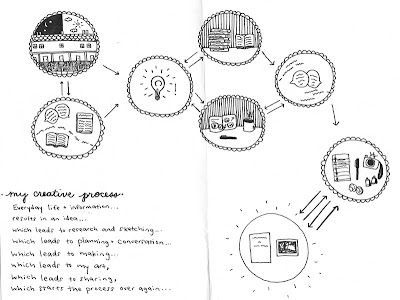 my creative process
Everyday life + information...
results in an idea...
which leads to research and sketching...
which leads to planning + conversation...
which leads to making...
which leads to my art,
which leads to sharing,
which starts the process over again...